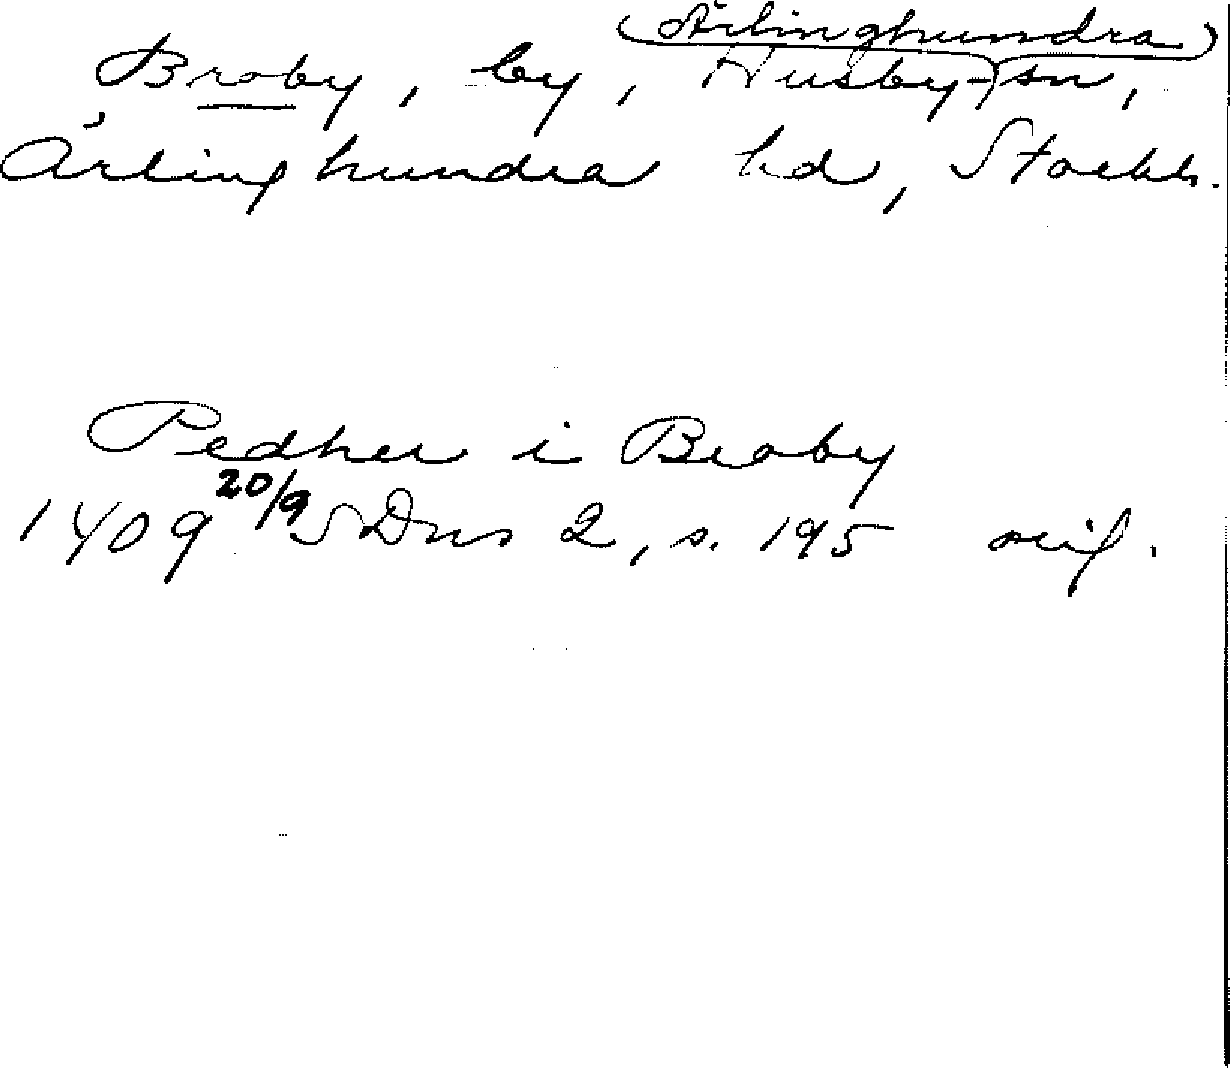 (Ärlinghundra)
Broby, by, Husby-sn,
Ärlinghundra hd, Stockh.
Pedher i Broby
1409 20/9 SDns 2, s. 195 orig.